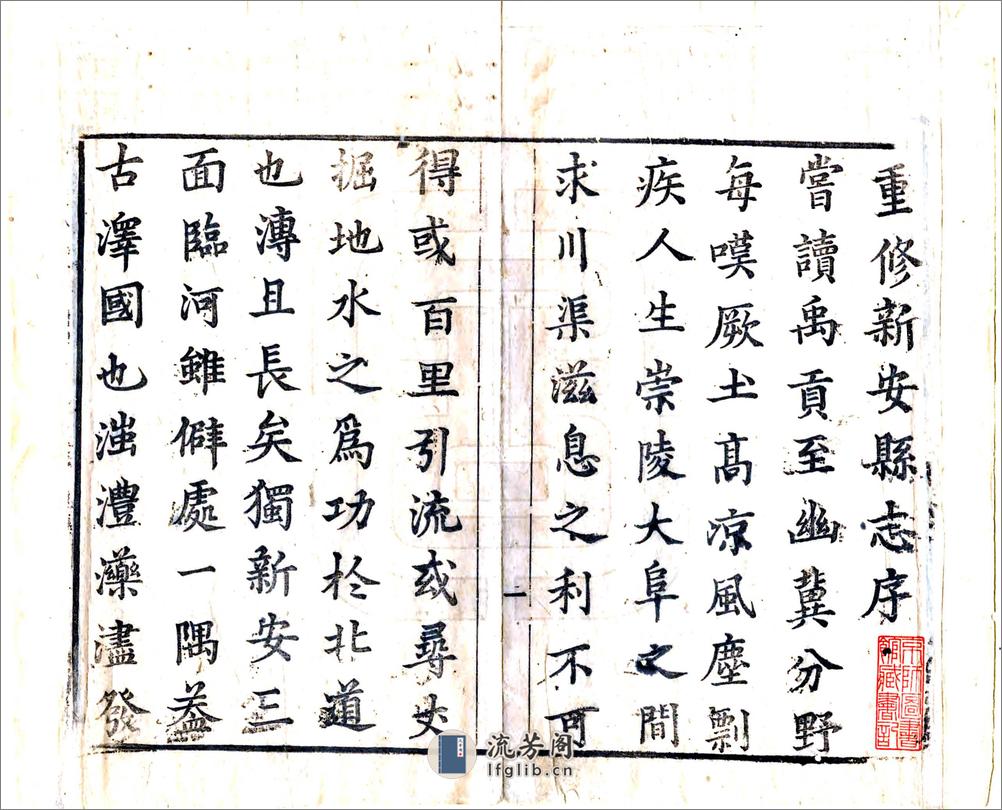 重修新安縣志序
嘗讀禹貢至幽冀分野
每嘆厥土高凉風塵剽
疾人生崇陵大阜之間
求川渠滋息之利不可
一
得或百里引流或尋丈
掘地水之爲功於北道
也漙且長矣獨新安三
面臨河雖僻處一隅葢
古澤國也滍澧濼濜發
京師圖書館藏書記
流芳阁
lfglib.cn